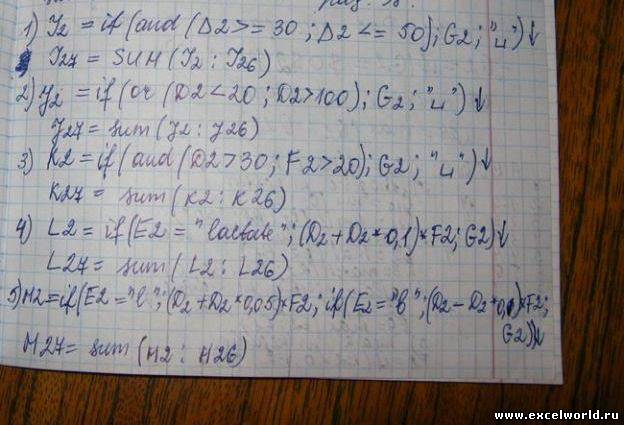 1) I2 = if (and (D2 >= 30 ; D2 <= 50) ; G2 ; "⌴") ↓
I27 = SUM (I2 : I26)
2) J2 = if (or (D2 < 20 ; D2 > 100) ; G2 ; "⌴") ↓
J27 = sum (J2 : J26)
3) K2 = if (and (D2 > 30 ; F2 > 20) ; G2 ; "⌴") ↓
K27 = sum (K2 : K26)
4) L2 = if (E2 = "lactate" ; (D2 + D2 * 0,1) * F2 ; G2) ↓
L27 = sum (L2 : L26)
5) M2 = if (E2 = "l" ; (D2 + D2 * 0,05) * F2 ; if (E2 = "b" ; (D2 - D2 * 0,1) * F2 ;
G2)) ↓
M27 = sum (M2 : M26)
www.excelworld.ru